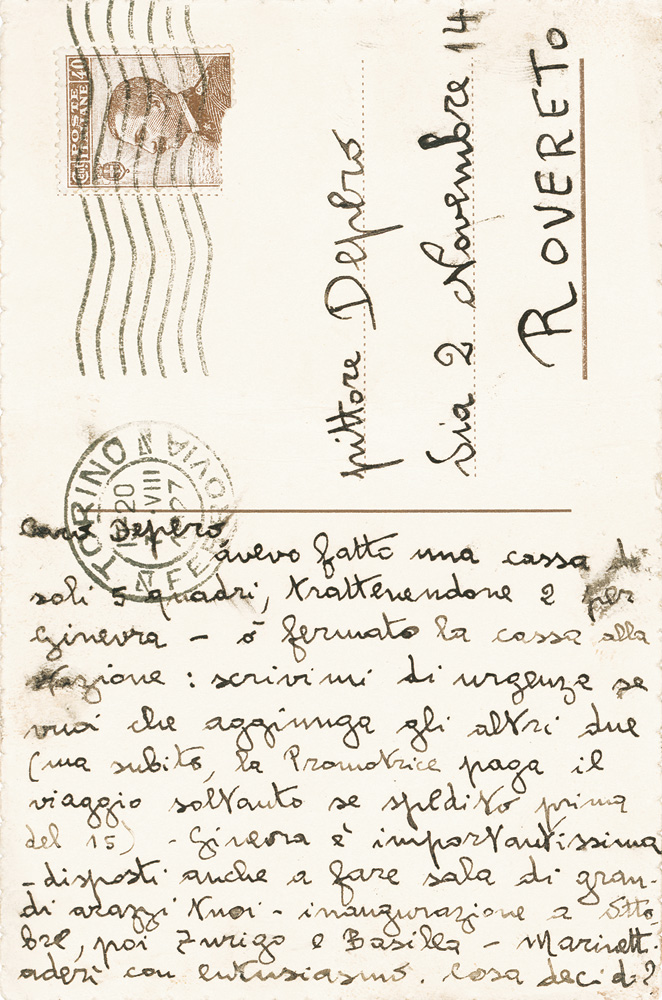 POSTE ITALIANE
CENT. 40
pittore Depero
Via 2 Novembre 14
ROVERETO
TORINO
FERROVIA
20
VIII
27
Caro Depero
avevo fatto una cassa di
soli 5 quadri, trattenendone 2 per
Ginevra - ò fermato la cassa alla
stazione : scrivimi di urgenza se
vuoi che aggiunga gli altri due
(ma subito, la Promotrice paga il
viaggio soltanto se spedito prima
del 15) - Ginevra è importantissima
- disposti anche a fare sala di gran-
di arazzi tuoi - inaugurazione a Otto
bre, poi Zurigo e Basilea - Marinetti
aderì con entusiasmo. Cosa decidi?